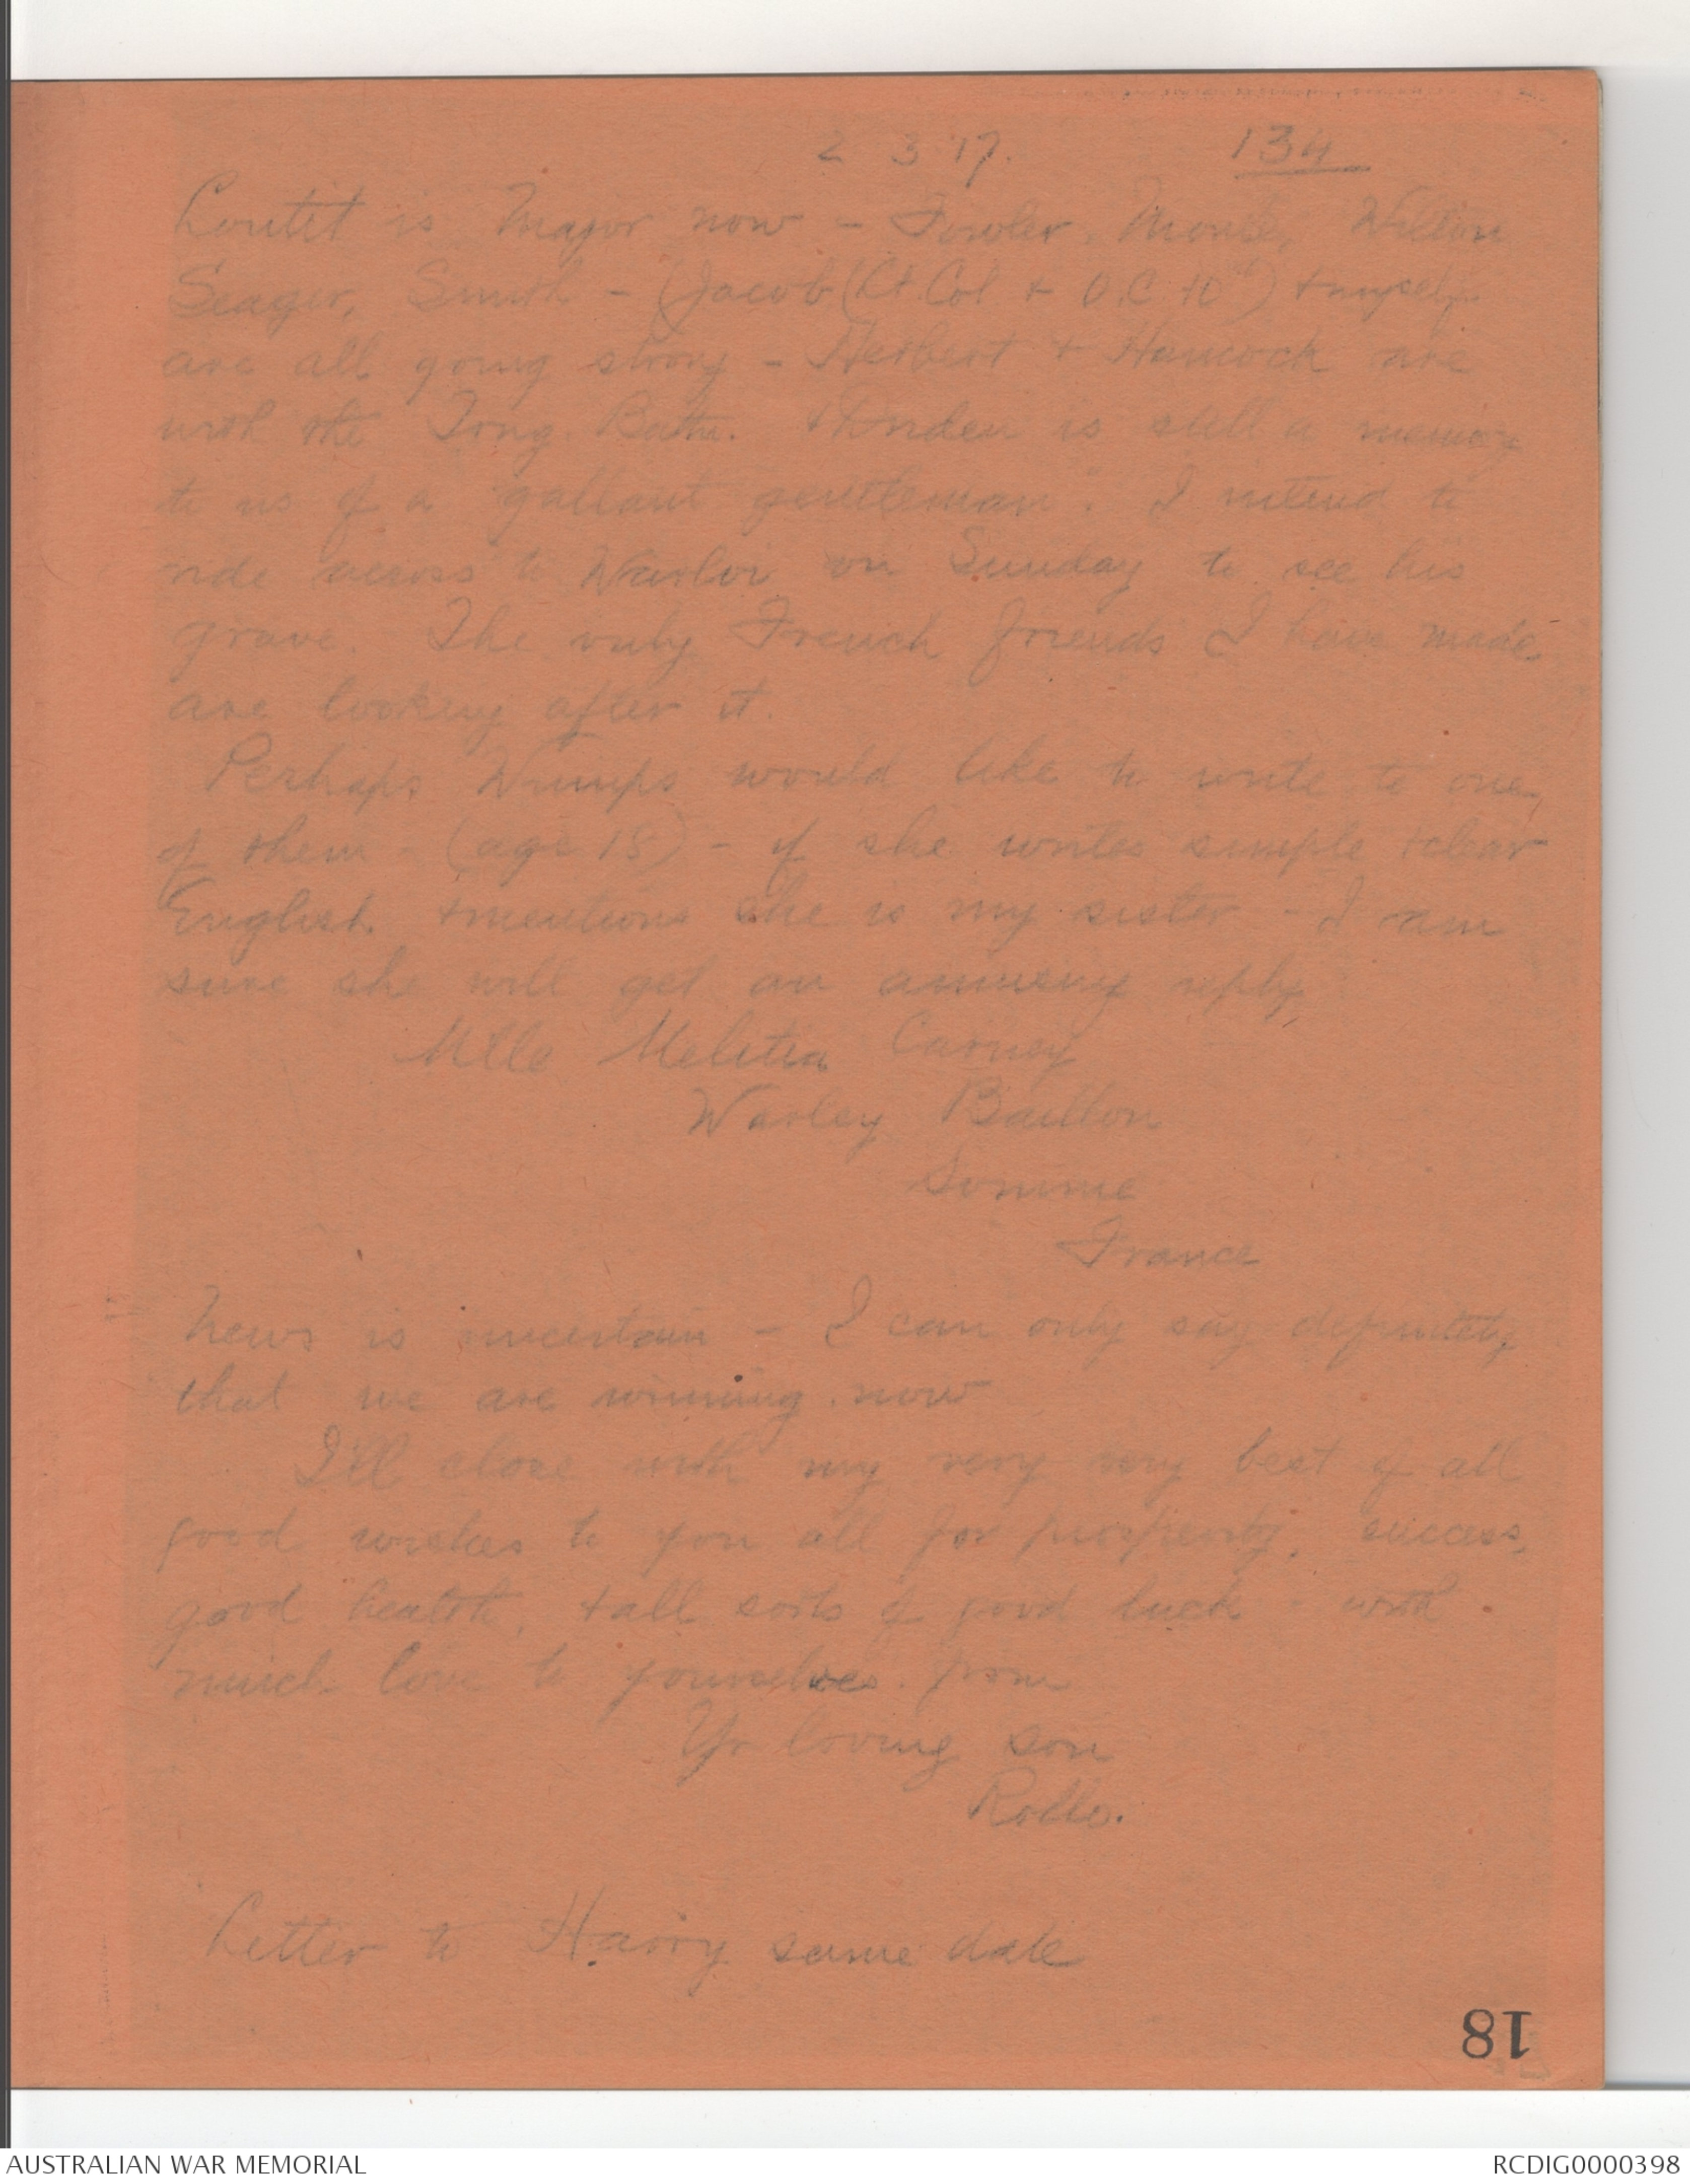 2 3 17. 134
Loutit is Major now - Fowler, Wilton
Seager, Smith - (Jacob (Lt. Col + O.C. 10th) + myself
are all going strong - Herbert + Hancock are
with the Trng. Battn. + is still a memory
to us of a "gallant gentleman". I intend to
ride across to Warloi on Sunday to see his
grave. The only French friends I have made
are looking after it.
Perhaps Wumps would like to write to one
of them - (age 18) - if she writes simple + clear
English + mentions she is my sister - I am
sure she will get an amusing reply,
Mlle Melitia Carney
Warley Baillon
Somme
France
News is uncertain - I can only say definitely
that we are winning now
I'll close with my very very best of all
good wishes to you all for prosperity, success,
good health, + all sorts of good luck - with
much love to yourselves from
Yr loving son
Rollo.
Letter to Harry same date
18
AUSTRALIAN WAR MEMORIAL
RCDIG0000398